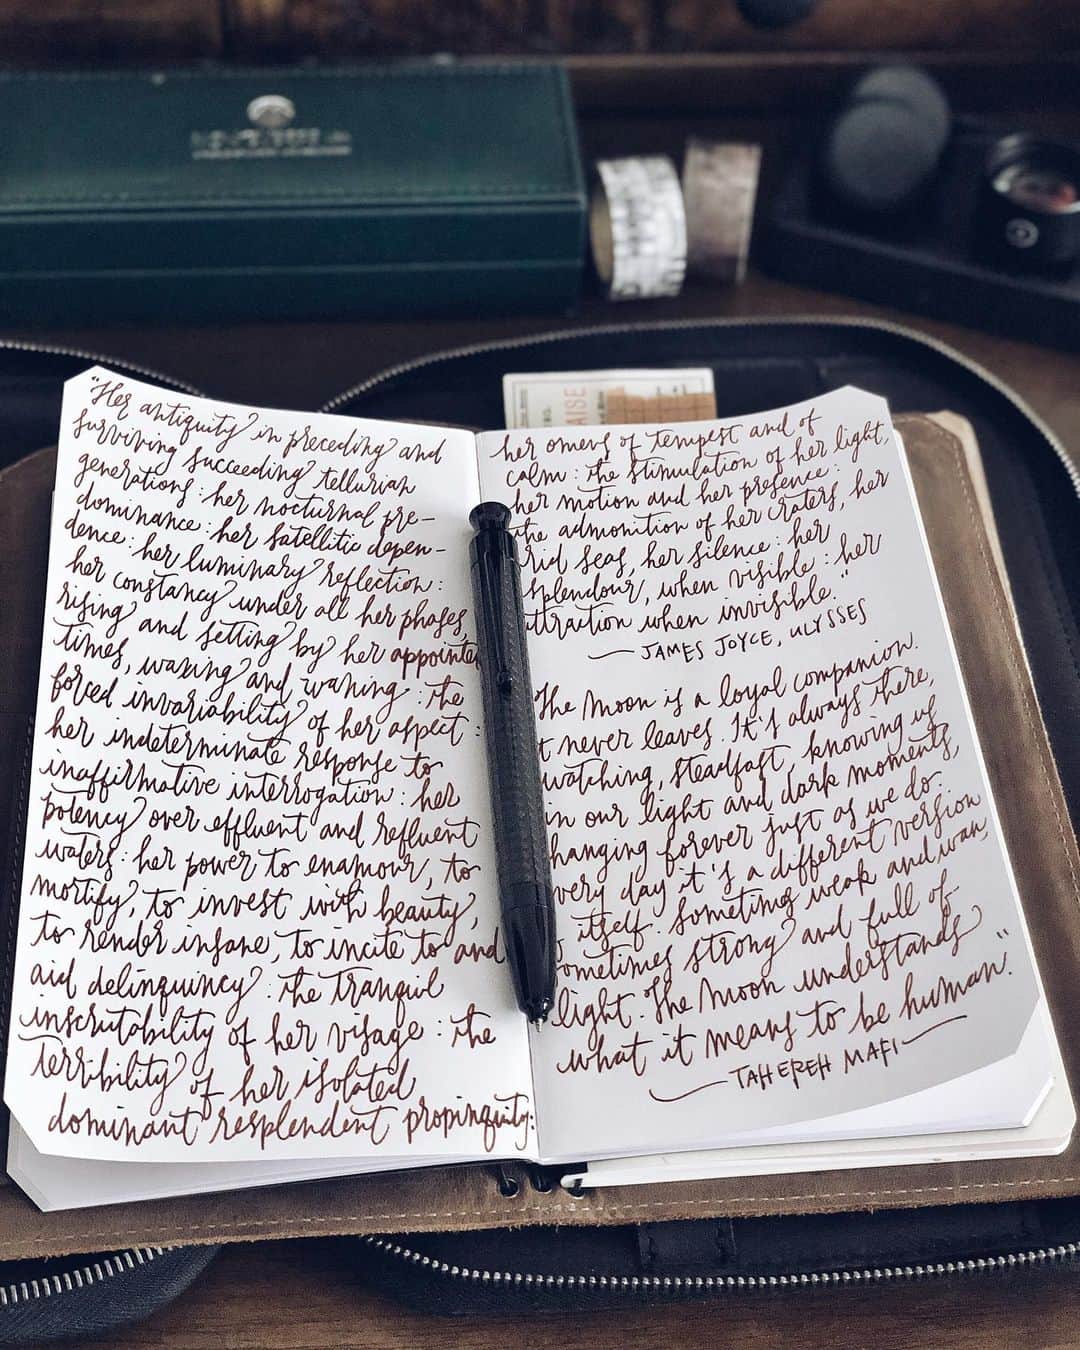 "Her antiquity in preceding and
surviving succeeding tellurian
generations: her nocturnal pre-
dominance: her satellitic depen-
dence: her luminary reflection:
her constancy under all her phases,
rising and setting by her appointe
times, waxing and waning: the
forced invariability of her aspect:
her indeterminate response to
inaffirmative interrogation: her
potency over effluent and refluent
waters: her power to enamour, to
mortify, to invest with beauty,
to render insane, to incite to and
aid delinquency: the tranquil
inscrutability of her visage: the
terribility of her isolated
dominant resplendent propinquity:
her omens of tempest and of
calm: the stimulation of her light,
her motion and her presence:
the admonition of her craters, her
rid seas, her silence: her
splendour, when visible: her
ttraction when invisible."
— JAMES JOYCE, ULYSSES
The Moon is a loyal companion.
t never leaves. It's always there,
watching, steadfast, knowing us
in our light and dark moments,
hanging forever just as we do.
very day it's a different version
o itself. Sometimes weak and wan,
ometimes strong and full of
light. The Moon understands
what it means to be human."
— TAHEREH MAFI —
AISE